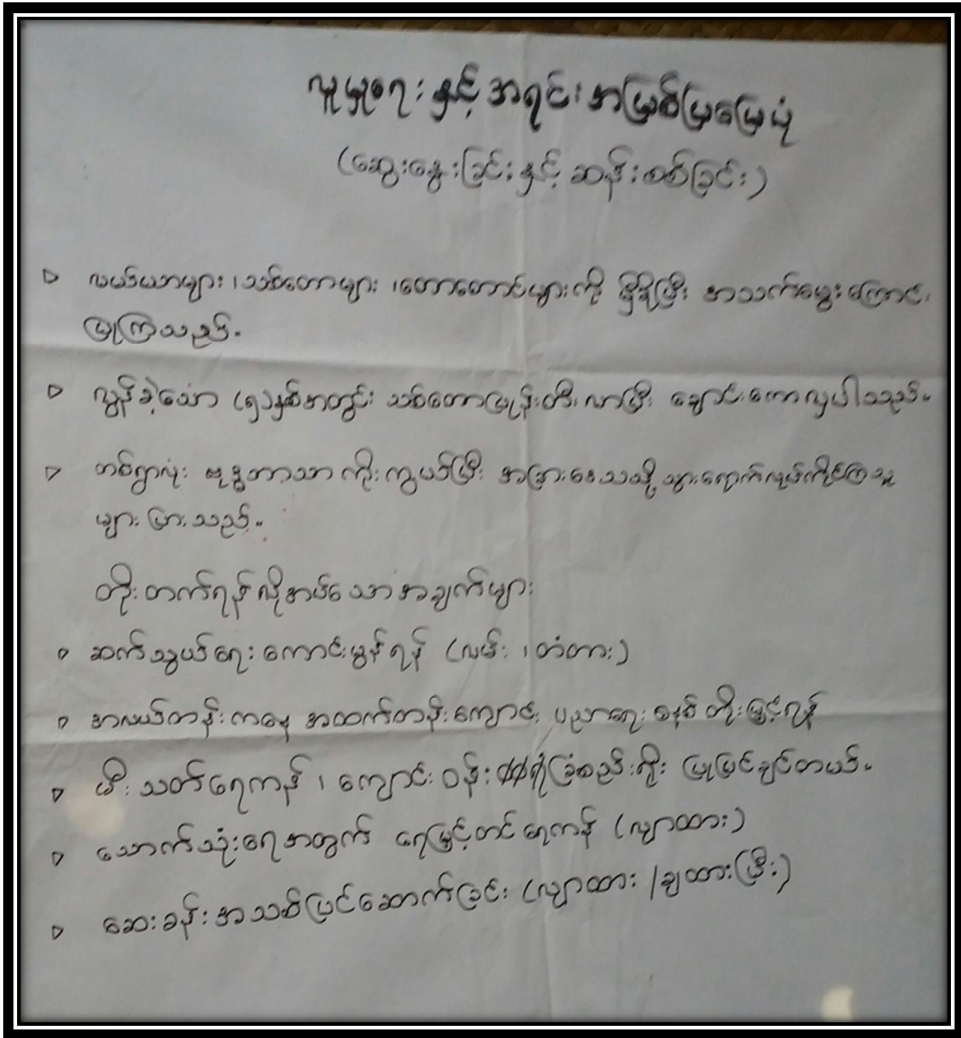 လူမှုရေးနှင့် အရင်းအမြစ်ပြမြေပုံ
(ဆွေးနွေးခြင်းနှင့် ဆန်းစစ်ခြင်း)
▷ လယ်ယာများ ၊သစ်တောများ ၊တောတောင်များကို မှီခိုပြီး အသက်မွေးကြောင်း
ပြုကြသည်။
▷ လွန်ခဲ့သော (၅)နှစ်အတွင်း သစ်တောပြုန်းတီးလာပြီး ချောင်းကောလှပါသည်။
▷ တစ်ရွာလုံး ဗုဒ္ဓဘာသာ ကိုးကွယ်ပြီး အခြားဒေသသို့ သွားရောက်လုပ်ကိုင်ကြသူ
များ များသည်။
တိုးတက်ရန် လိုအပ်သော အချက်များ
▷ ဆက်သွယ်ရေး ကောင်းမွန်ရန် (လမ်း ၊တံတား)
▷ အလယ်တန်းကနေ အထက်တန်းကျောင်း ပညာရေး စနစ် တိုးမြှင့်ရန်
▷ မီးသတ်ရေကန် ၊ ကျောင်းဝန်း ခြံစည်းရိုး ပြုပြင်ချင်တယ်။
▷ သောက်သုံးရေအတွက် ရေမြှင့်တင် ရေကန် (လျာထား)
▷ ဆေးခန်းအသစ်ပြင်ဆောက်ခြင်း (လျာထား /ချထားပြီး)